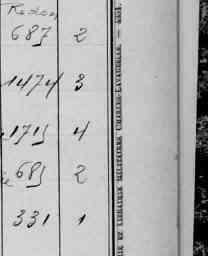 687 2
1474 3
1715 4
685 2
331 1
LE ET LIBRAIRIE MILITAIRES CHARLES-LAVAUZELLE. —